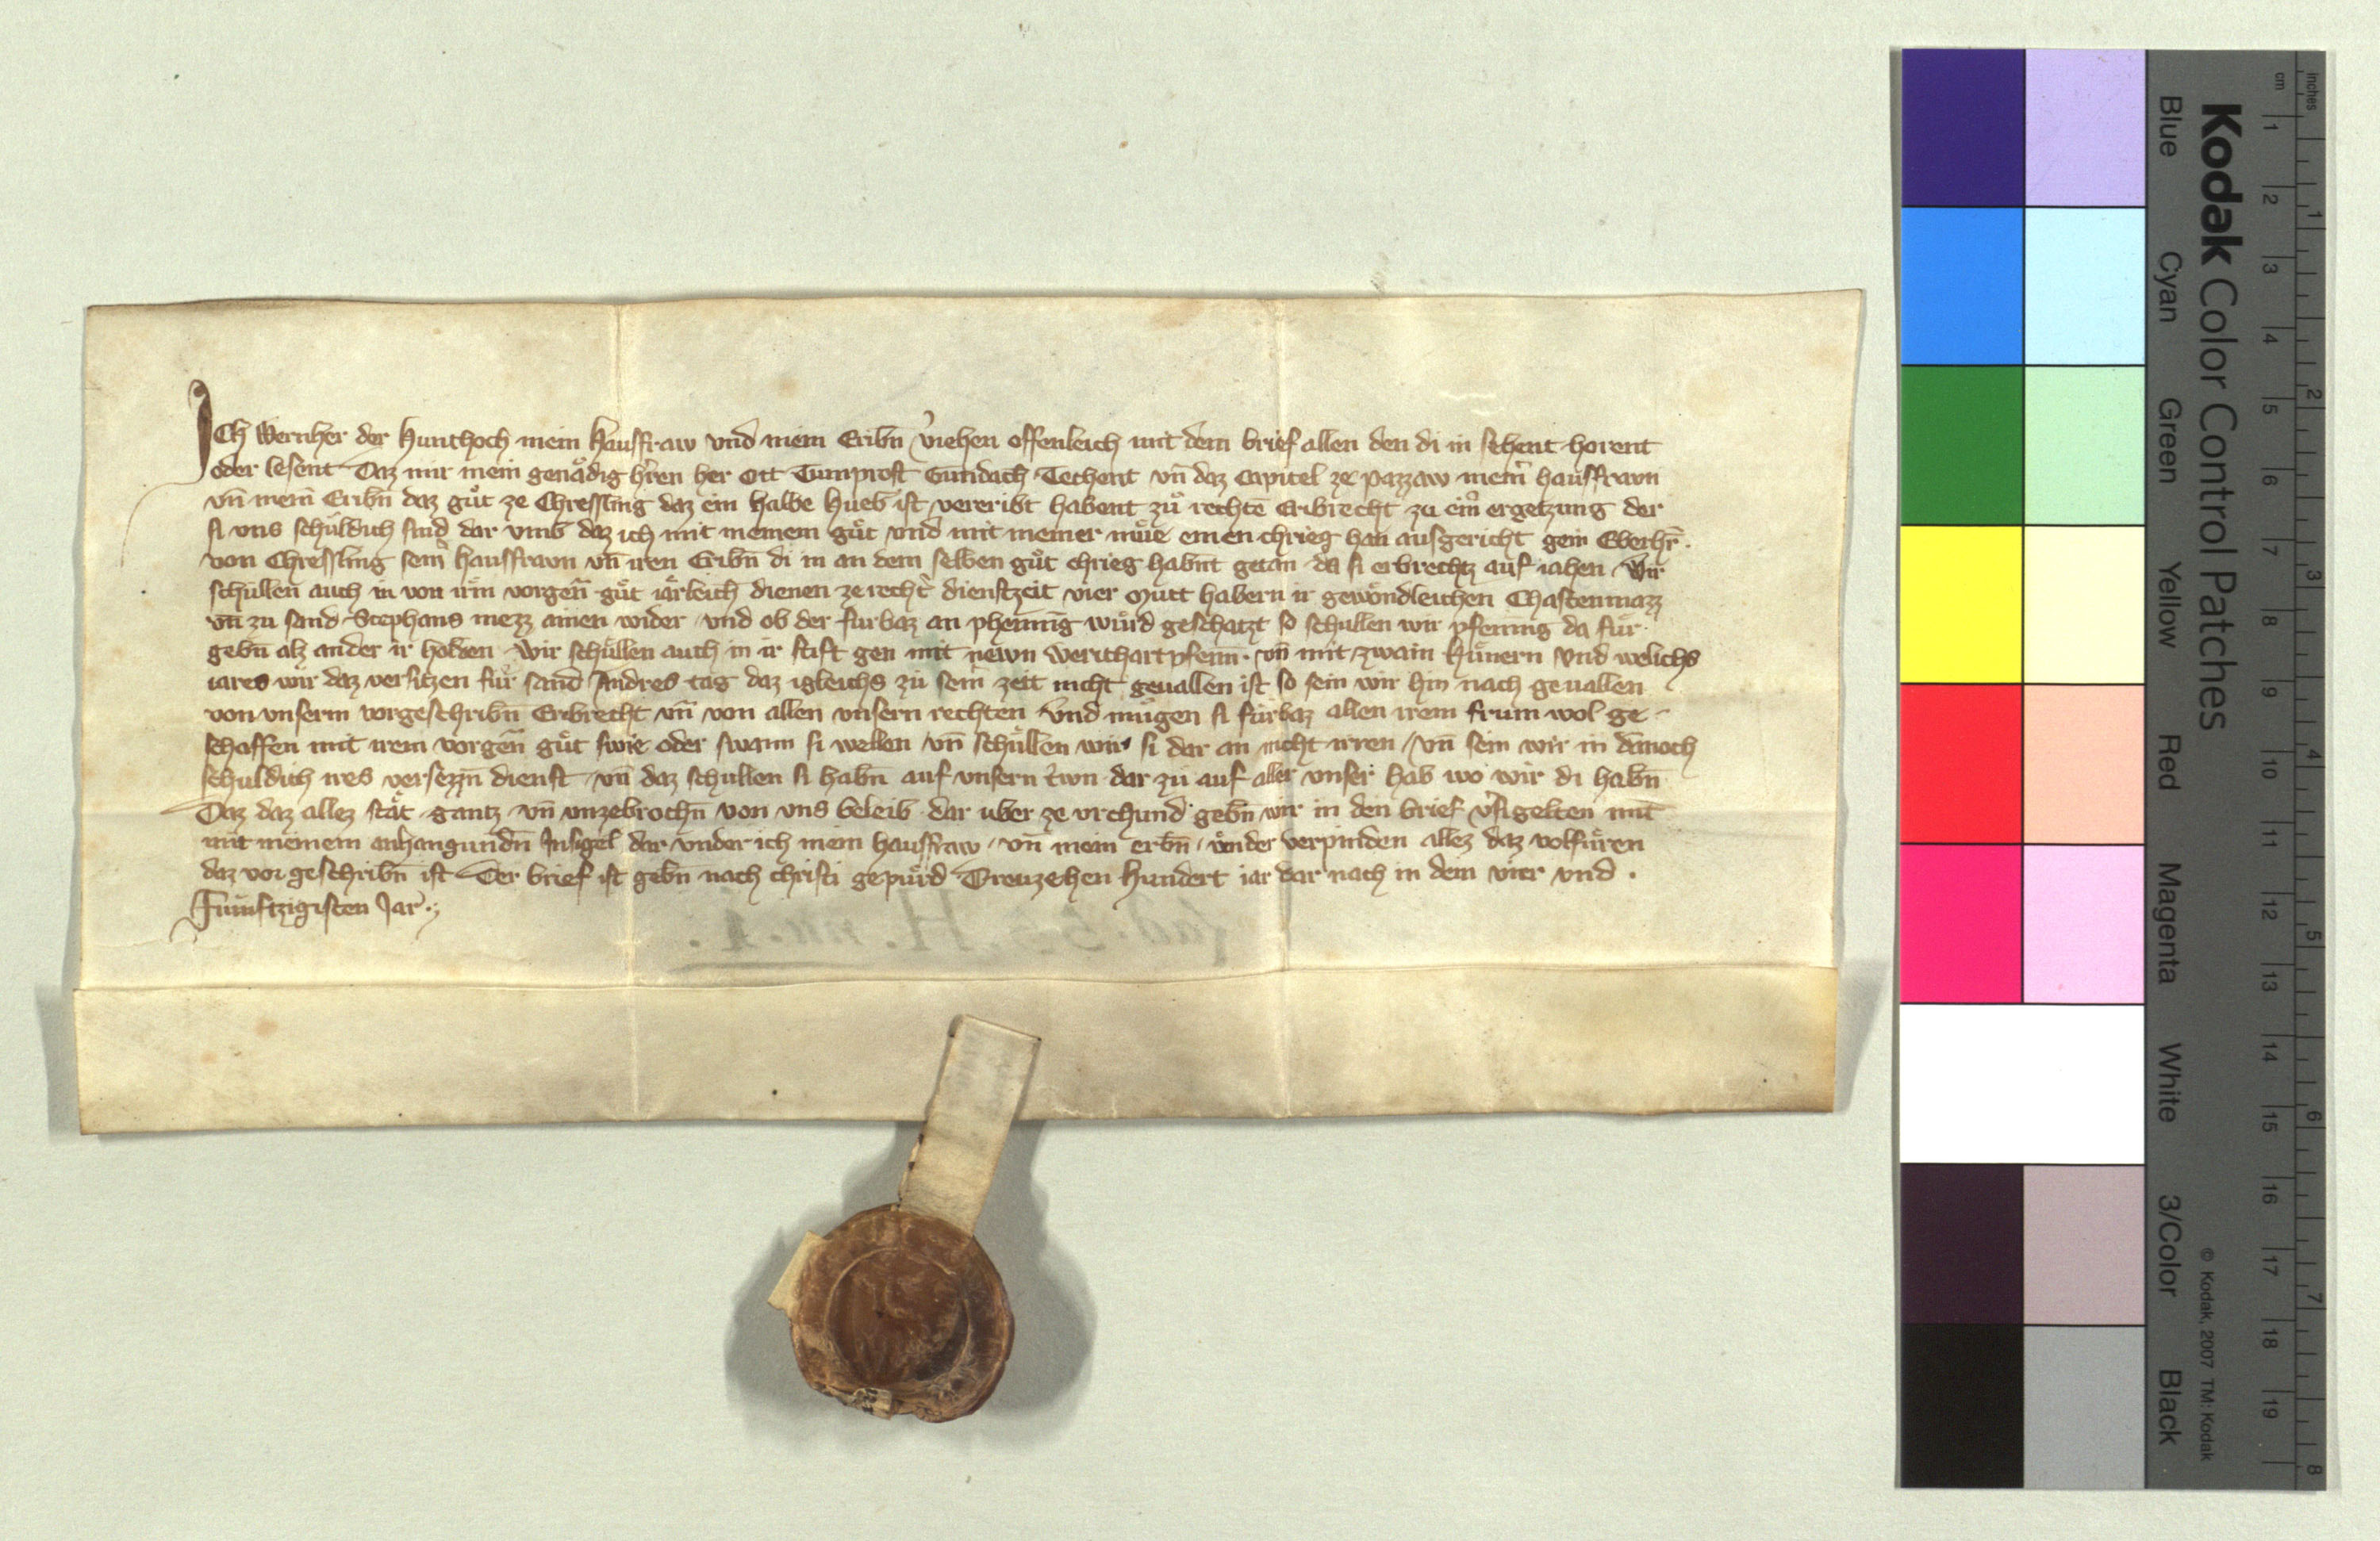 ICh Wernher der Hunthoch mein Hausfraw vnd mein Eribn̄ v̓iehen offenleich mit dem brief allen den di in sehent horent
oder lesent Daz mir mein genaͤdig h̓ren her Ott Tumprost Gundach Techent vn̄ daz Capitel ze pazzaw mein̓ hausfravn
vn̄ mein̄ Eribn̄ daz guͤt ze Chressling daz ein halbe Hueb ist vereribt habent zuͦ rechtē Eribrecht zu ein̓ ergetzung der
si vns schuldich sind dar vmb daz ich mit meinem guͤt vnd mit meiner muͤe einen chrieg han ausgericht gein
von Chressling sein̓ hausfravn vn̄ iren Eribn̄ di in an dem selben guͤt chrieg habnt getan da si erbrechtz auf iahen Wir
schullen auch in von irm̄ vorgen̄ guͤt iaͤrleich dienen ze recht̓ dienstzeit vier Mutt habern ir gewoͤndleichen Chastenmazz
vn̄ zu sand Stephans mezz ainen wider vnd ob der furbaz an phenning wuͤrd geschatzt so schullen wir pfening da fuͤr
gebn̄ alz ander ir holden Wir schuͤllen auch in ir stift gen mit newn Werithartpfenn̄ · vn̄ mit zwain Huͤnern vnd welichs
iares wir daz versitzen fuͤr sand Andres tag daz igleichs zu sein zeit nicht geuallen ist so sein wir hin nach geuallen
von vnserm vorgeschribn̄ Eribrecht vn̄ von allen vnsern rechten vnd muͤgen si fuͤrbaz allen irem frum wol ge-
schaffen mit irem vorgen̄ guͤt swie oder swann si wellen vn̄ schuͤllen wir si dar an nicht irren / vn̄ sein wir in dānoch
schuldich ires versezzn̄ dienst · vn̄ daz schullen si habn̄ auf vnsern trwn dar zu auf aller vnser hab wo wir di habn̄
Daz daz allez staͤt gantz vn̄ vnzebrochn̄ von vns beleib dar uber ze vrchund gebn̄ wir in den brief v̓sigelten mit
mit meinem anhangundn̄ Insigel dar vnder ich mein hausfraw / vn̄ mein erbn̄ / vnder verpinden allez daz volfuͤren
daz vor geschribn̄ ist Der brief ist gebn̄ nach christi gepuͤrd Dreuzehen Hundert iar dar nach in dem vier vnd ·
Fumftzigisten Jar ·
Kodak Color Control Patches
Blue Cyan Green Yellow Red Magenta White 3/Color Black
© Kodak, 2007 TM: Kodak
inches 1 2 3 4 5 6 7 8
cm 1 2 3 4 5 6 7 8 9 10 11 12 13 14 15 16 17 18 19